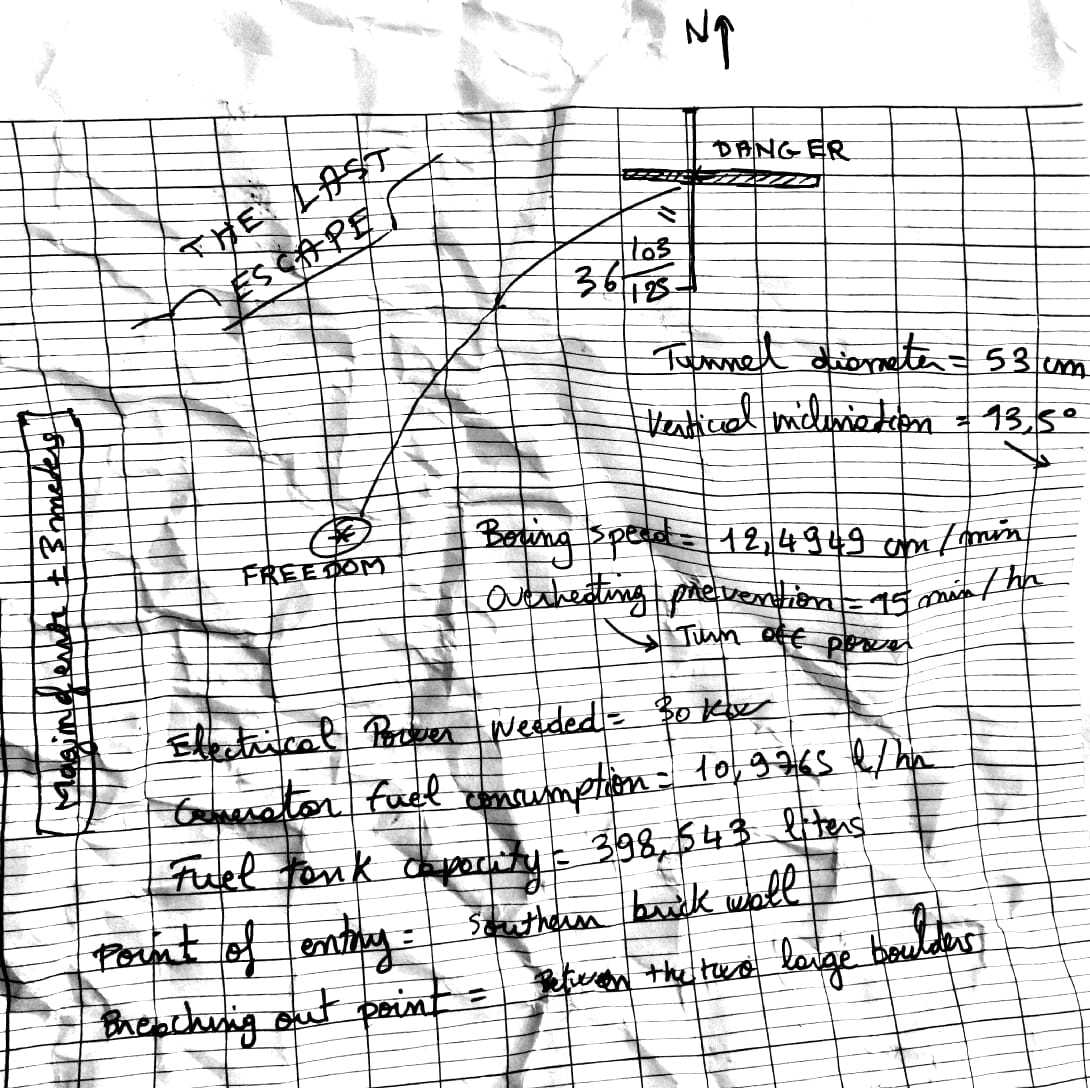 N↑
DANGER
THE LAST
ESCAPE
=
36 103/125
Tunnel diameter = 53 cm
Vertical inclination = 13,5°
Boring speed = 12,4949 cm/min
Overheating prevention = 15 min/hr
Turn off power
FREEDOM
Margin d'error ± 3 meters
Electrical Power Needed = 30 kw
Generator fuel consumption = 10,9765 l/hr
Fuel tank capacity = 398,543 liters
Point of entry = Southern brick wall
Breaching out point = Between the two large boulders